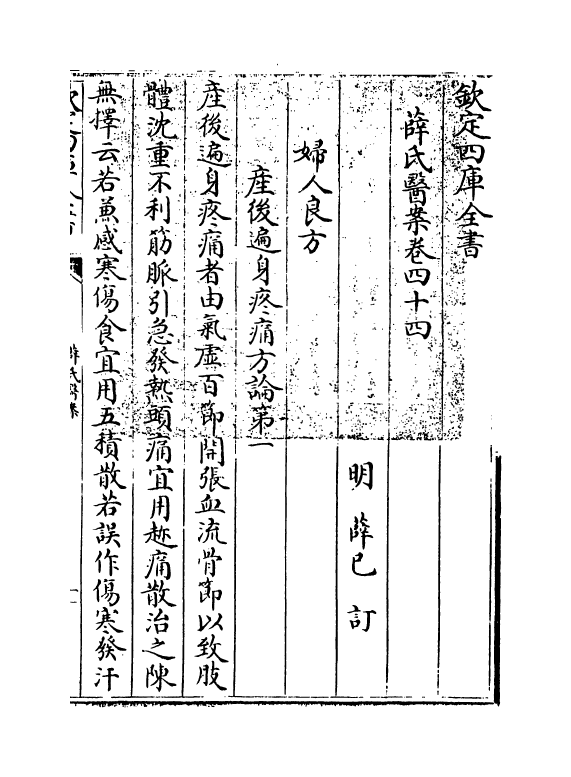 欽定四庫全書
薛氏醫案卷四十四
明 薛己 訂
婦人良方
産後遍身疼痛方論第一
産後遍身疼痛者由氣虛百節開張血流骨節以致肢
體沈重不利筋脈引急發熱頭痛宜用趂痛散治之陳
無擇云若兼感寒傷食宜用五積散若誤作傷寒發汗
薛氏醫案